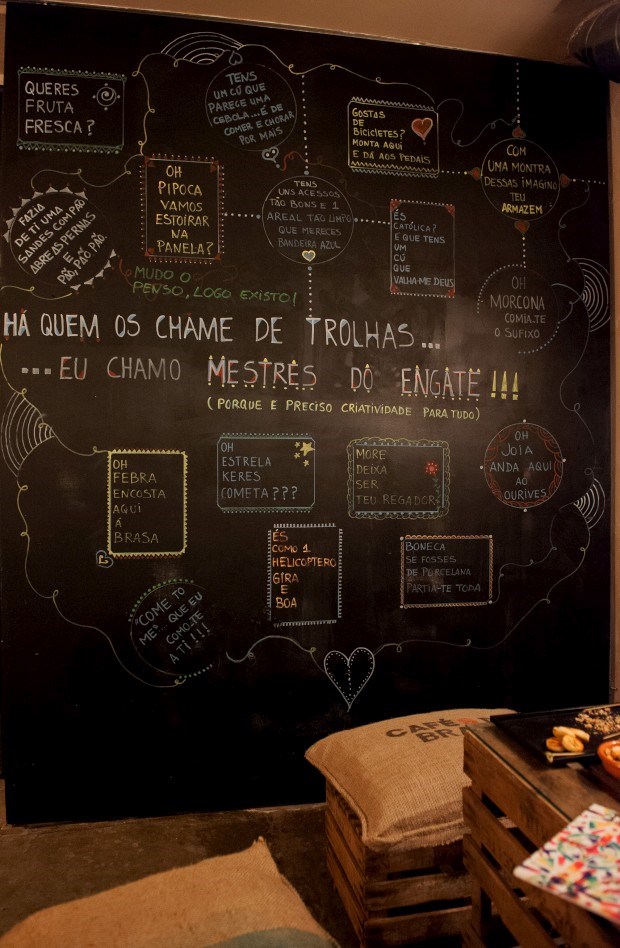 QUERES
FRUTA
FRESCA?
TENS
UM CÚ QUE
PARECE UMA
CEBOLA...É DE
COMER E CHORAR
POR MAIS
GOSTAS
DE
BICICLETES?
MONTA AQUI
E DÁ AOS PEDAIS
COM
UMA MONTRA
DESSAS IMAGINO
TEU
ARMAZEM
FAZIA
DE TI UMA
SANDES COM PÃO
ABRES AS PERNAS
E
PÃO, PÃO, PÃO
OH
PIPOCA
VAMOS
ESTOIRAR
NA
PANELA?
TENS
UNS ACESSOS
TÃO BONS E 1
AREAL TÃO LIMPO
QUE MERECES
BANDEIRA AZUL
ÉS
CATÓLICA?
E QUE TENS
UM
CÚ
QUE
VALHA-ME DEUS
OH
MORCONA
COMIA.TE
O SUFIXO
MUDO O
PENSO, LOGO EXISTO!
HÁ QUEM OS CHAME DE TROLHAS...
...EU CHAMO MESTRES DO ENGATE!!!
(PORQUE E PRECISO CRIATIVIDADE PARA TUDO)
OH
FEBRA
ENCOSTA
AQUI
Á
BRASA
OH
ESTRELA
KERES
COMETA???
MORE
DEIXA
SER
TEU REGADOR
OH
JOIA
ANDA AQUI
AO
OURIVES
ÉS
COMO 1
HELICOPTERO
GIRA
E
BOA
BONECA
SE FOSSES
DE PORCELANA
PARTIA-TE TODA
"COME TO
ME" QUE EU
COMO.TE
A TI!!!
CAFÉ
BRA